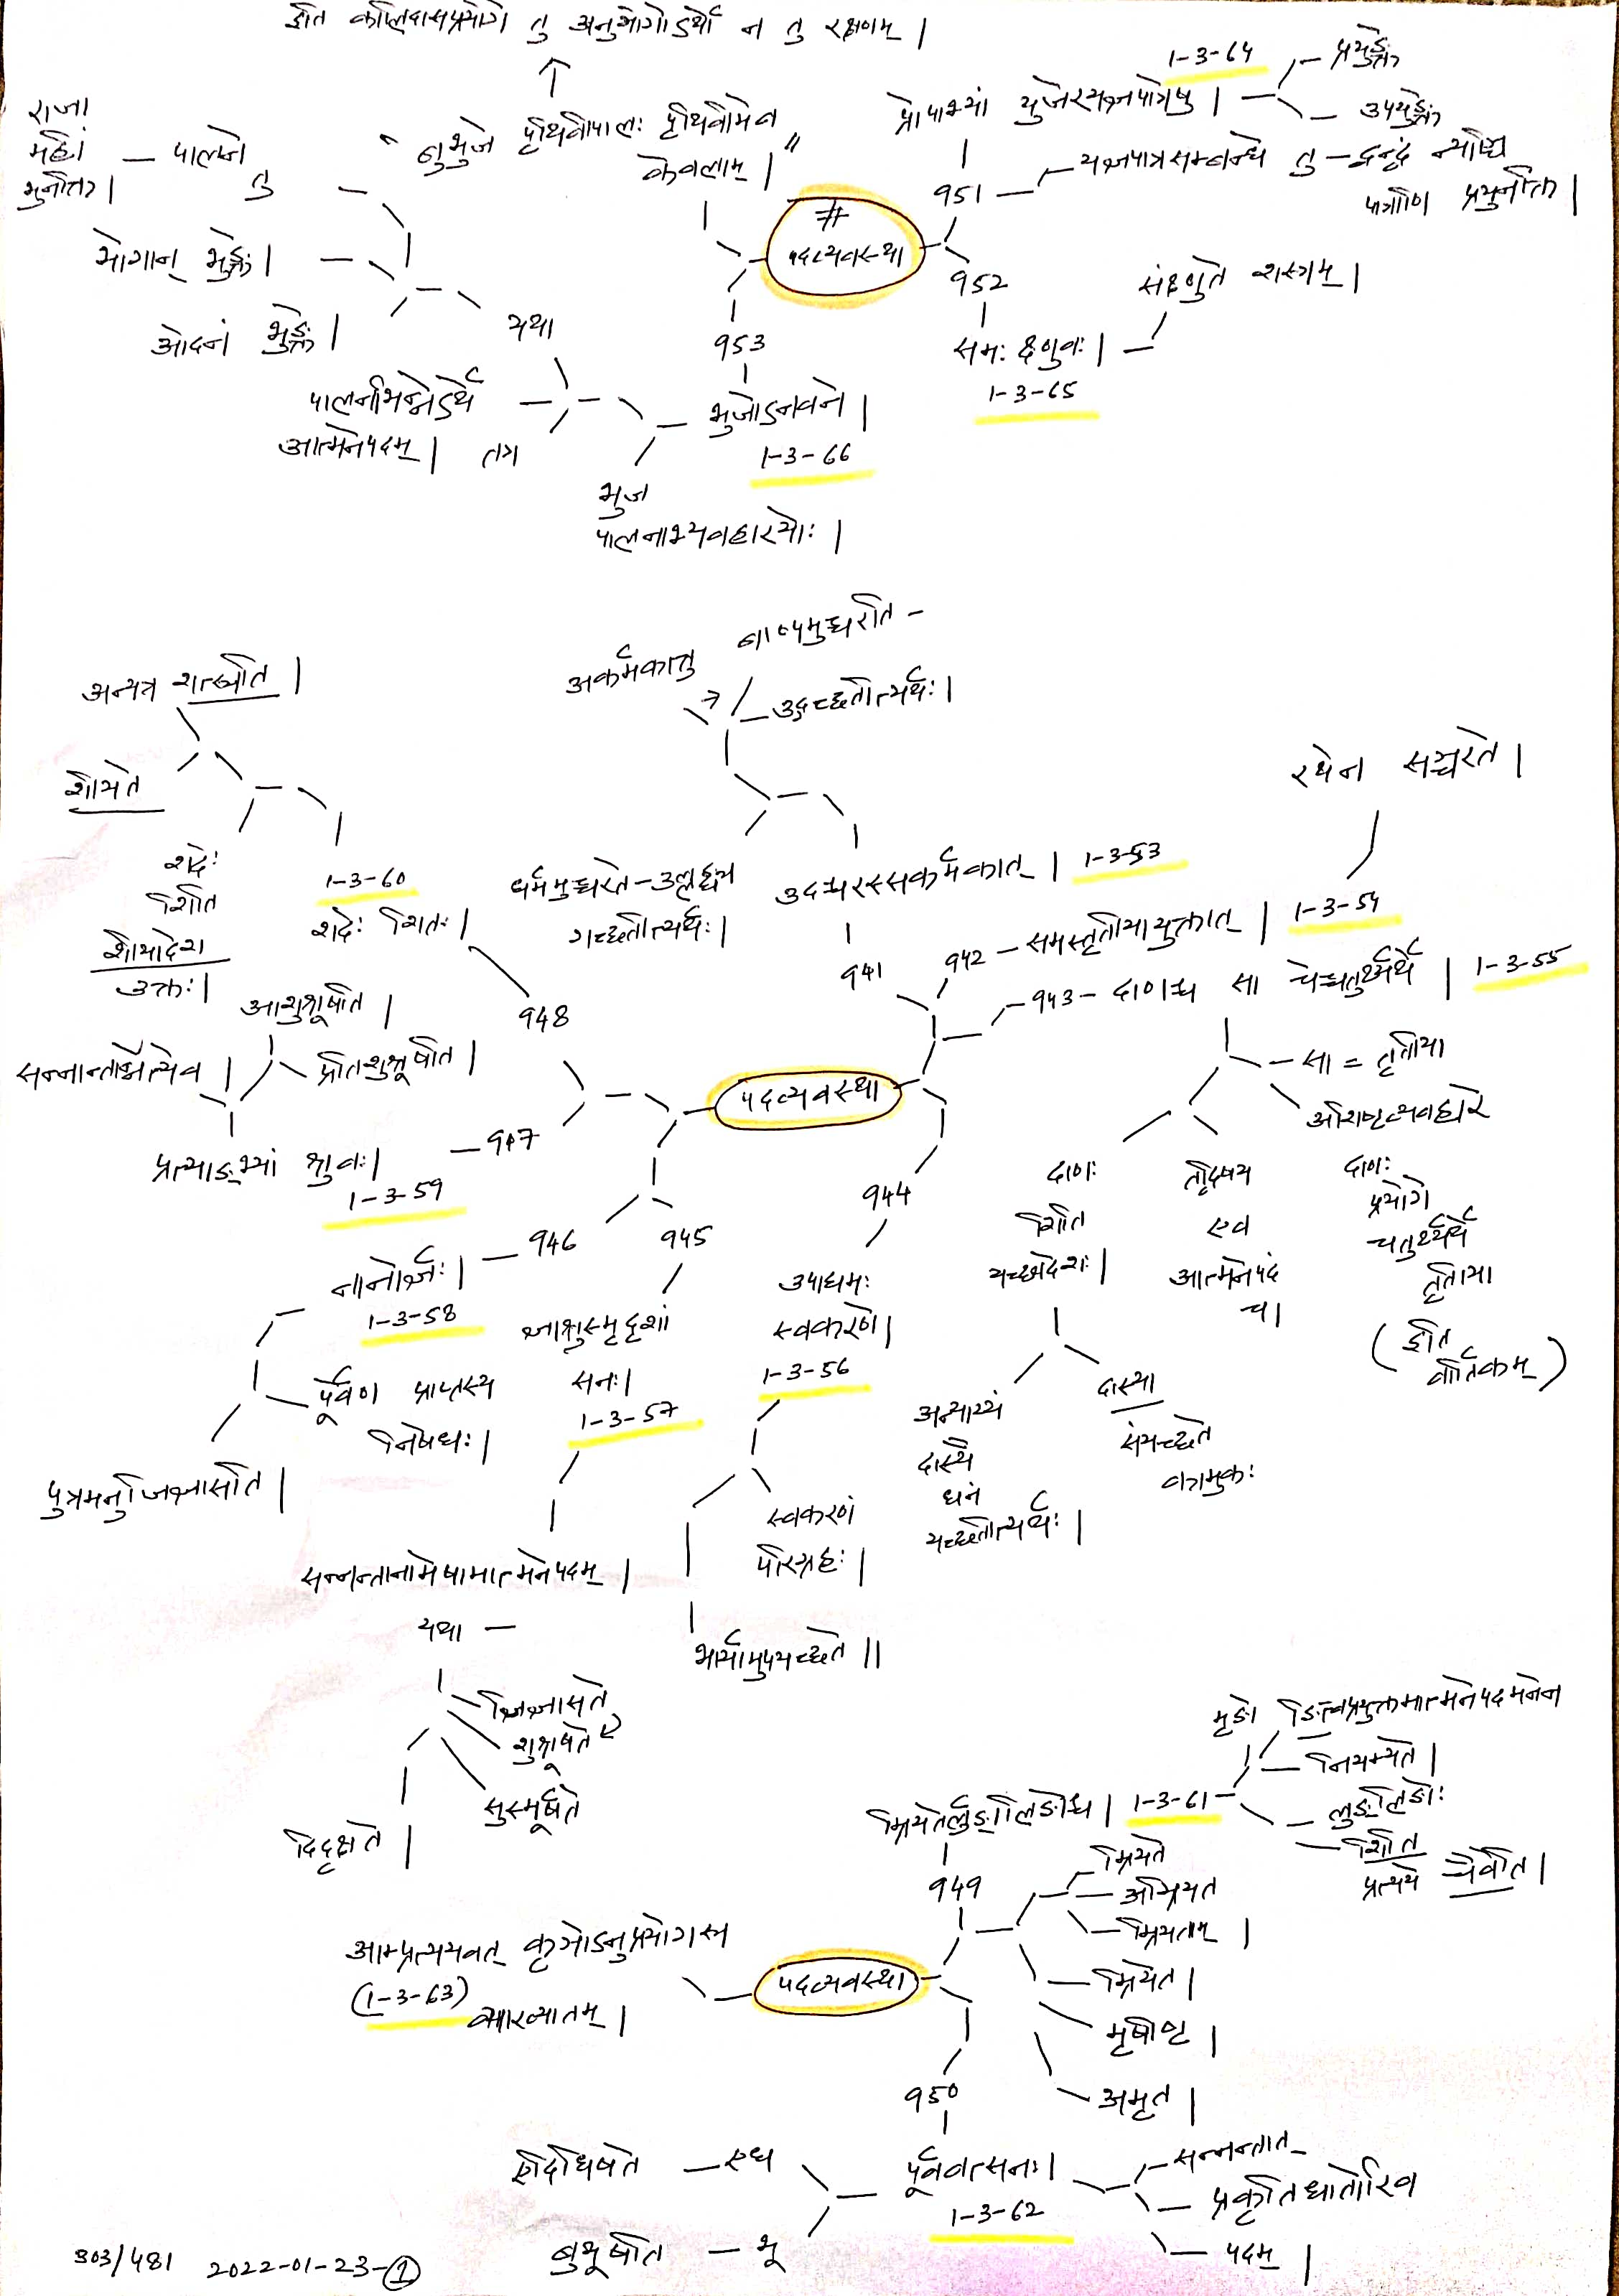 इति कालिदासप्रयोगे तु अनुभोगोऽर्थो न तु रक्षणम् |
"बुभुजे पृथिवीपालः पृथिवीमेव
केवलाम् |"
राजा
महीं
भुनक्ति |
— पालने
तु
भोगान् भुङ्क्ते |
ओदनं भुङ्क्ते |
यथा
पालनभिन्नेऽर्थे
आत्मनेपदम् |
तत्र
953
भुजोऽनवने |
1-3-66
भुज
पालनाभ्यवहारयोः |
#
पदव्यवस्था
1-3-64
प्रोपाभ्यां युजेरयज्ञपात्रेषु |
प्रयुङ्क्ते
उपयुङ्क्ते
951
यज्ञपात्रसम्बन्धे तु — द्वन्द्वं न्यञ्चि
पात्राणि प्रयुनक्ति |
952
समः क्ष्णुवः |
1-3-65
संक्ष्णुते शस्त्रम् |
अन्यत्र शत्स्यति |
शीयते
शदेः
शिति
शीयादेश
उक्तः |
1-3-60
शदेः शितः |
948
अकर्मकात्तु
बाष्पमुच्चरति -
उद्गच्छतीत्यर्थः |
धर्ममुच्चरते - उल्लङ्घ्य
गच्छतीत्यर्थः |
उदश्चरस्सकर्मकात् | 1-3-53
941
रथेन सञ्चरते |
942 - समस्तृतीयायुक्तात् | 1-3-54
943 - दाणश्च सा चेच्चतुर्थ्यर्थे | 1-3-55
सा = तृतीया
अशिष्टव्यवहारे
दाणः
प्रयोगे
चतुर्थ्यर्थे
तृतीया
(इति
वार्तिकम्)
तद्विषय
एव
आत्मनेपदं
च |
दाणः
शिति
यच्छादेशः |
दास्या
संयच्छते
कामुकः
अन्याय्यं
दास्यै
धनं
यच्छतीत्यर्थः |
पदव्यवस्था
आशुश्रूषति |
प्रतिशुश्रूषति |
सन्नन्ताभ्यामित्येव |
प्रत्याङ्भ्यां श्रुवः |
1-3-59
947
946
नानोर्ज्ञः |
1-3-58
पूर्वेण प्राप्तस्य
निषेधः |
पुत्रमनुजिज्ञासति |
945
ज्ञाश्रुस्मृदृशां
सनः |
1-3-57
सन्नन्तानामेषामात्मनेपदम् |
यथा —
जिज्ञासते
शुश्रूषते
सुस्मूर्षते
दिदृक्षते |
944
उपाद्यमः
स्वकरणे |
1-3-56
स्वकरणं
परिग्रहः |
भार्यामुपयच्छते ||
म्रियतेर्लुङ्लिङोश्च | 1-3-61
मृङो ङित्त्वप्रयुक्तमात्मनेपदमनेन
नियम्यते |
लुङ्लिङोः
शिति
प्रत्यये चैवेति |
949
म्रियते
अम्रियत
म्रियताम् |
म्रियेत |
मृषीष्ट |
अमृत |
पदव्यवस्था
आम्प्रत्ययवत् कृञोऽनुप्रयोगस्य
(1-3-63)
व्याख्यातम् |
950
पूर्ववत्सनः |
1-3-62
सन्नन्तात्
प्रकृतिधातोरिव
पदम् |
एदिधिषते — एध
बुभूषति — भू
303/481 2022-01-23-①